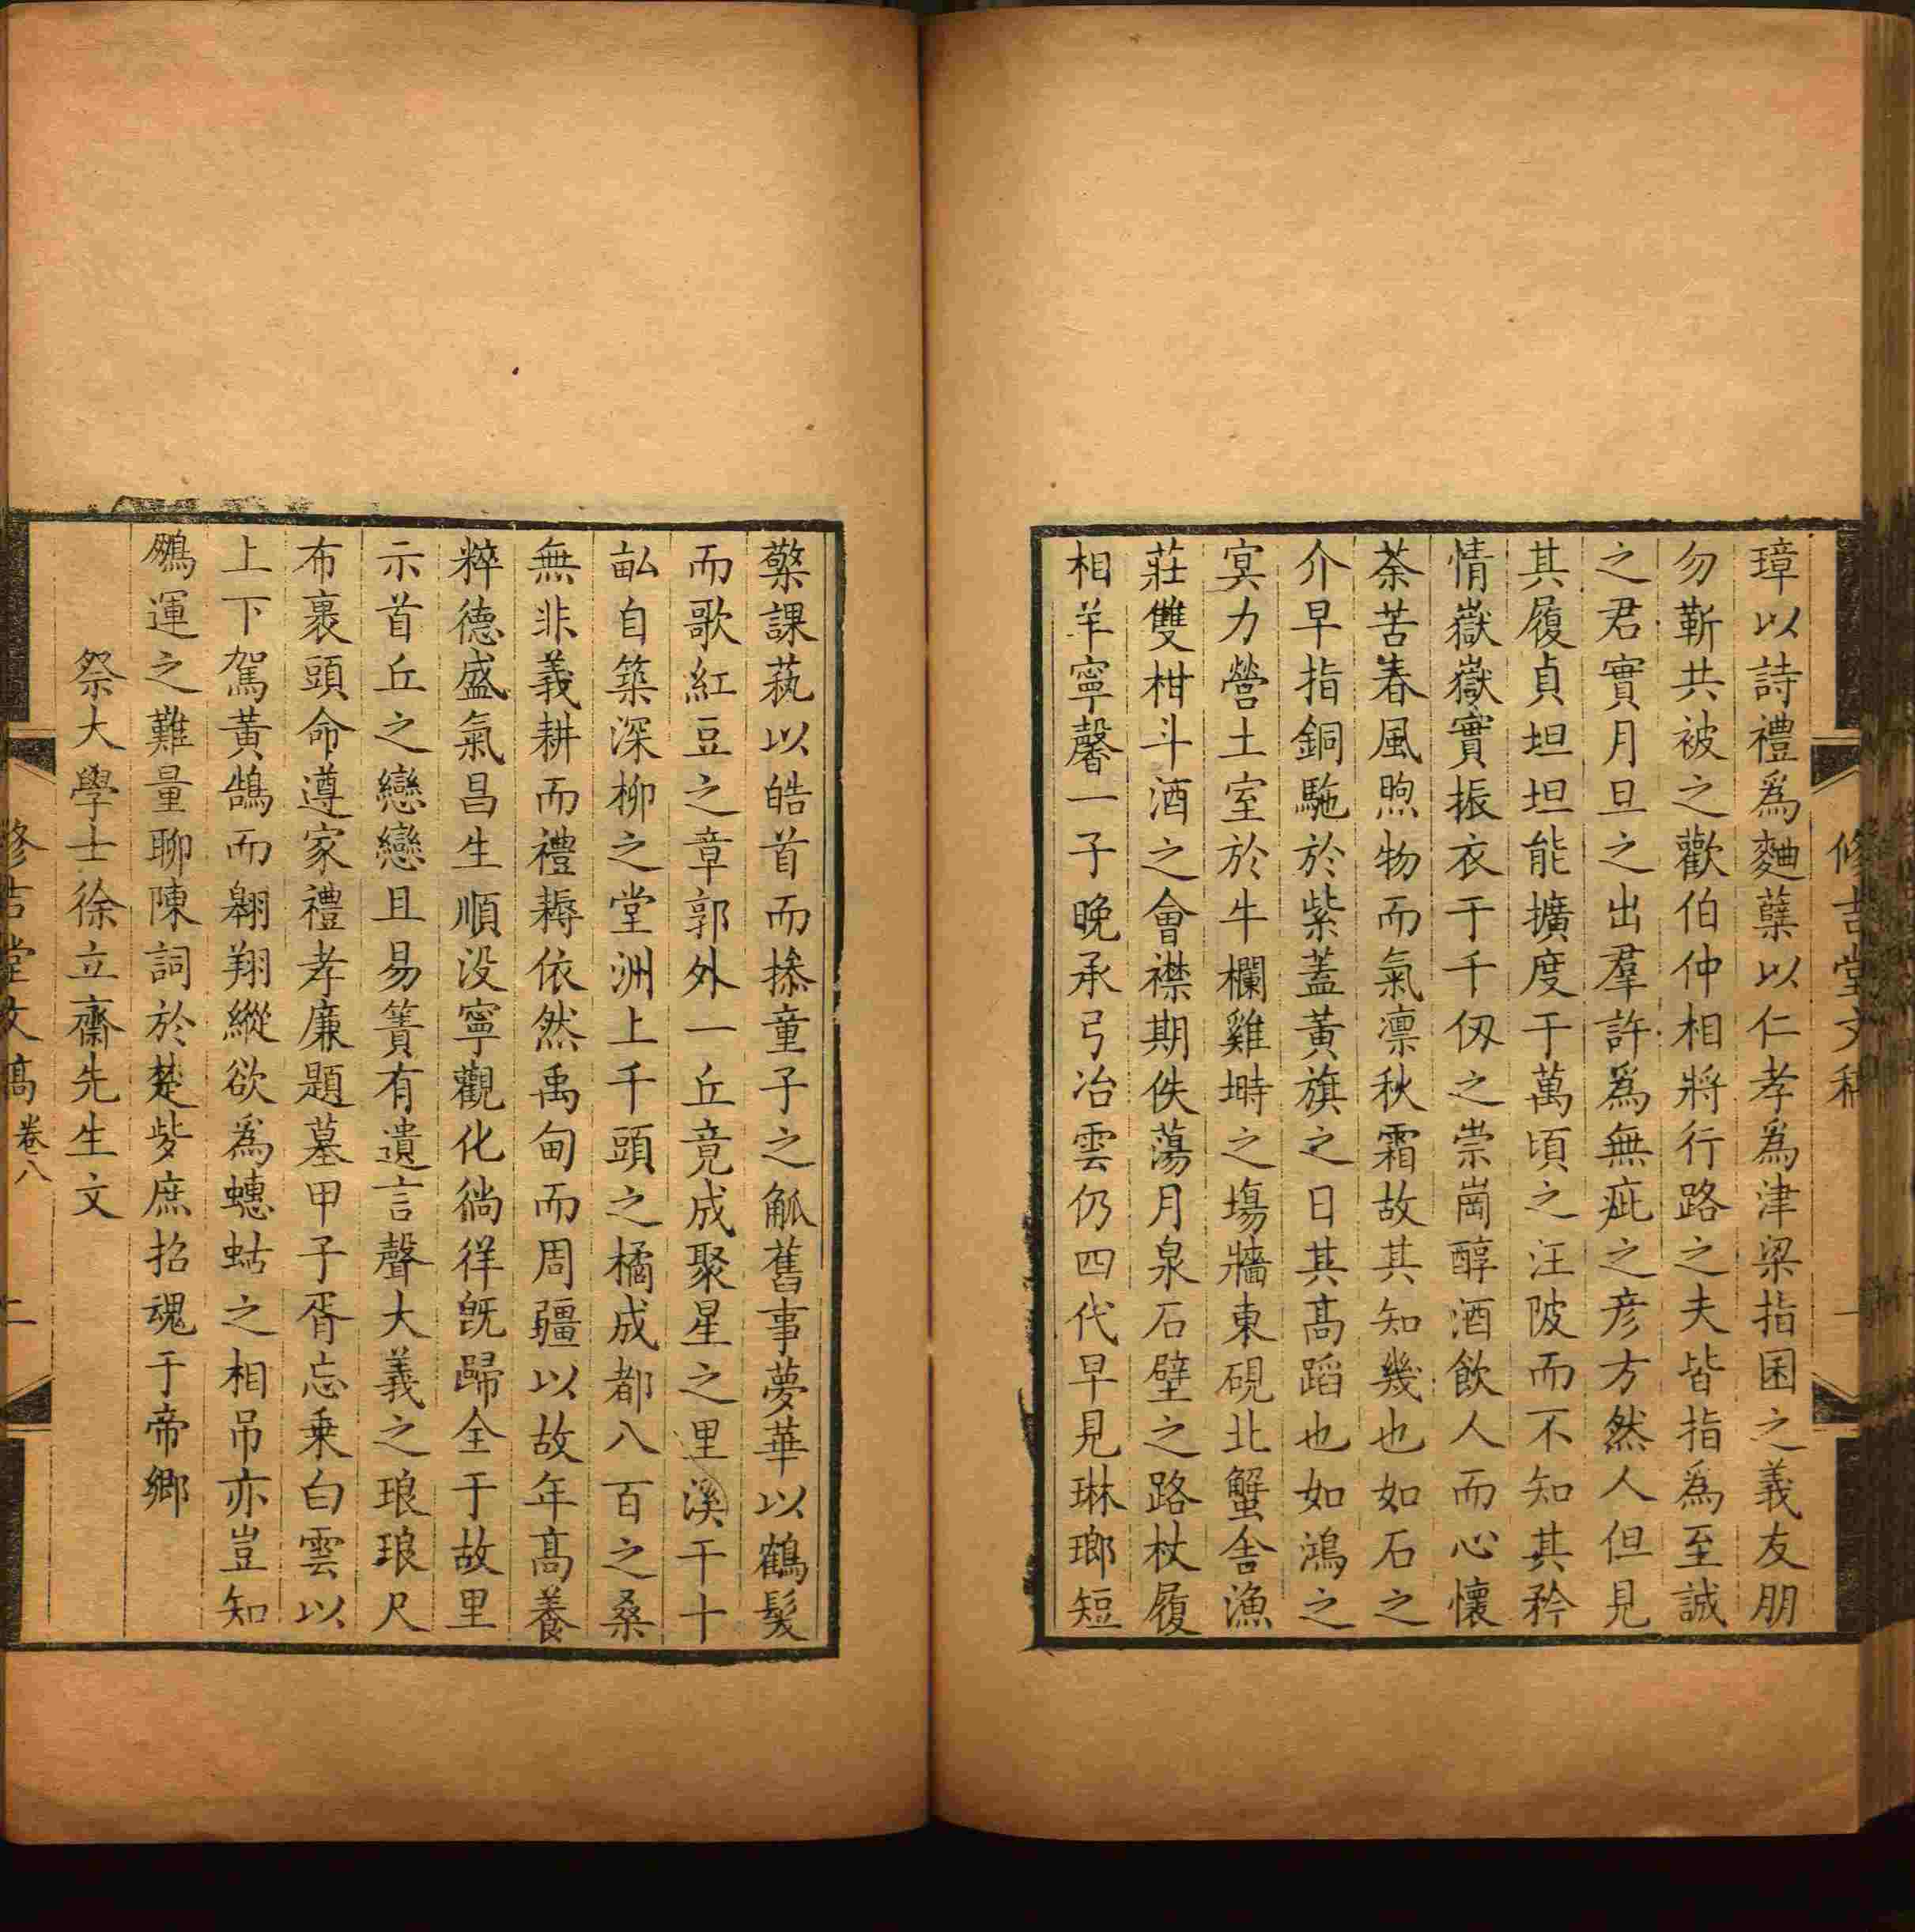 修吉堂文稿
一
璋以詩禮爲麯糵以仁孝爲津梁指囷之義友朋
勿靳共被之歡伯仲相將行路之夫皆指爲至誠
之君實月旦之出羣許爲無疵之彦方然人但見
其履貞坦坦能擴度于萬頃之汪陂而不知其矜
情嶽嶽實振衣于千仭之崇崗醇酒飲人而心懷
荼苦春風煦物而氣凛秋霜故其知幾也如石之
介早指銅駞於紫葢黃旗之日其髙蹈也如鴻之
㝠力營土室於牛欄雞塒之塲牆東硯北蟹舎漁
莊雙柑斗酒之會襟期佚蕩月泉石壁之路杖履
相羊寧馨一子晚承弓冶雲仍四代早見琳瑯短
檠課蓺以皓首而摻童子之觚舊事夢華以鶴髮
而歌紅豆之章郭外一丘竟成聚星之里溪干十
畆自築深柳之堂洲上千頭之橘成都八百之桑
無非義耕而禮耨依然禹甸而周疆以故年髙養
粹德盛氣昌生順没寧觀化徜徉旣歸全于故里
示首丘之戀戀且易簀有遺言聲大義之琅琅尺
布裹頭命遵家禮孝廉題墓甲子胥忘乗白雲以
上下駕黃鵠而翱翔縱欲爲蟪蛄之相吊亦豈知
鵬運之難量聊陳詞於楚些庶招魂于帝鄉
祭大學士徐立齋先生文
修吉堂文稿
卷八
二